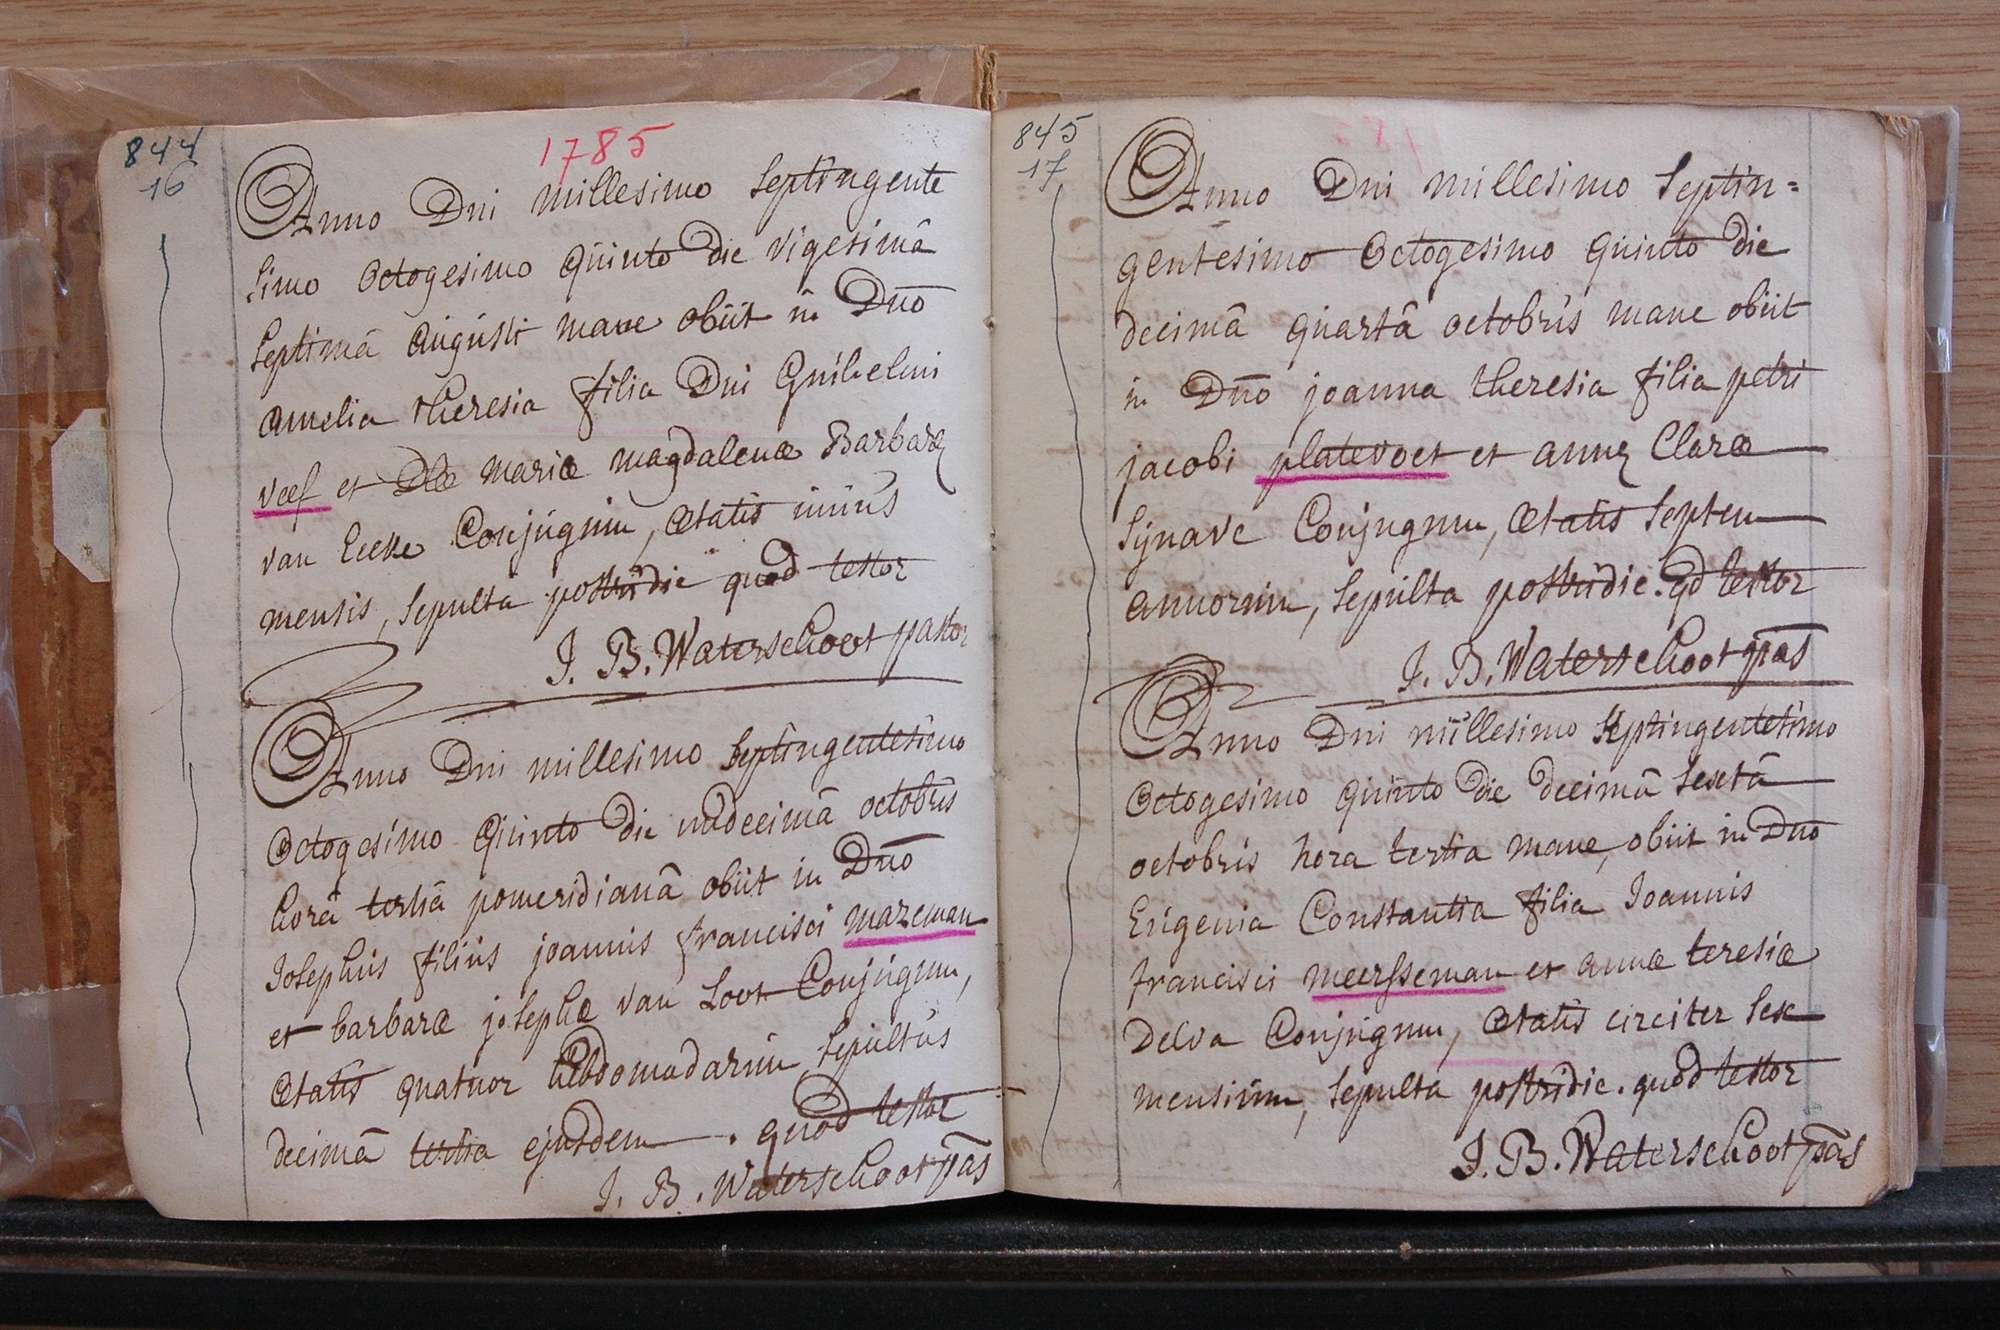 844
16
1785
Anno Dni millesimo septingente
simo octogesimo quinto die vigesimâ
septimâ augusti mane obiit in Dño
amelia theresia filia Dni Guilielmi
veef et Dlæ mariæ magdalenæ Barbaræ
van Eecke Conjugum, ætatis unius
mensis, sepulta postridie quod testor
J. B. Waterschoot pastor
Anno Dni millesimo septingentesimo
octogesimo quinto die undecimâ octobris
horâ tertiâ pomeridianâ obiit in Dño
Josephus filius joannis francisci mazeman
et barbaræ josephæ van Loot Conjugum,
ætatis quatuor hebdomadarum, sepultus
decimâ tertia ejusdem . quod testor
J. B. Waterschoot pās
845
17
Anno Dni millesimo septin=
gentesimo octogesimo quinto die
decimâ quartâ octobris mane obiit
in Dño joanna theresia filia petri
jacobi platevoet et annæ Claræ
Sijnave Conjugum, ætatis septem
annorum, sepulta postridie. qd testor
J. B. Waterschoot pās
Anno Dni millesimo septingentesimo
octogesimo quinto die decimâ sextâ
octobris hora tertia mane, obiit in Dño
Eugenia Constantia filia Joannis
francisci meersseman et annæ teresiæ
Delva Conjugum, ætatis circiter sex
mensium, sepulta postridie. quod testor
J. B. Waterschoot pās